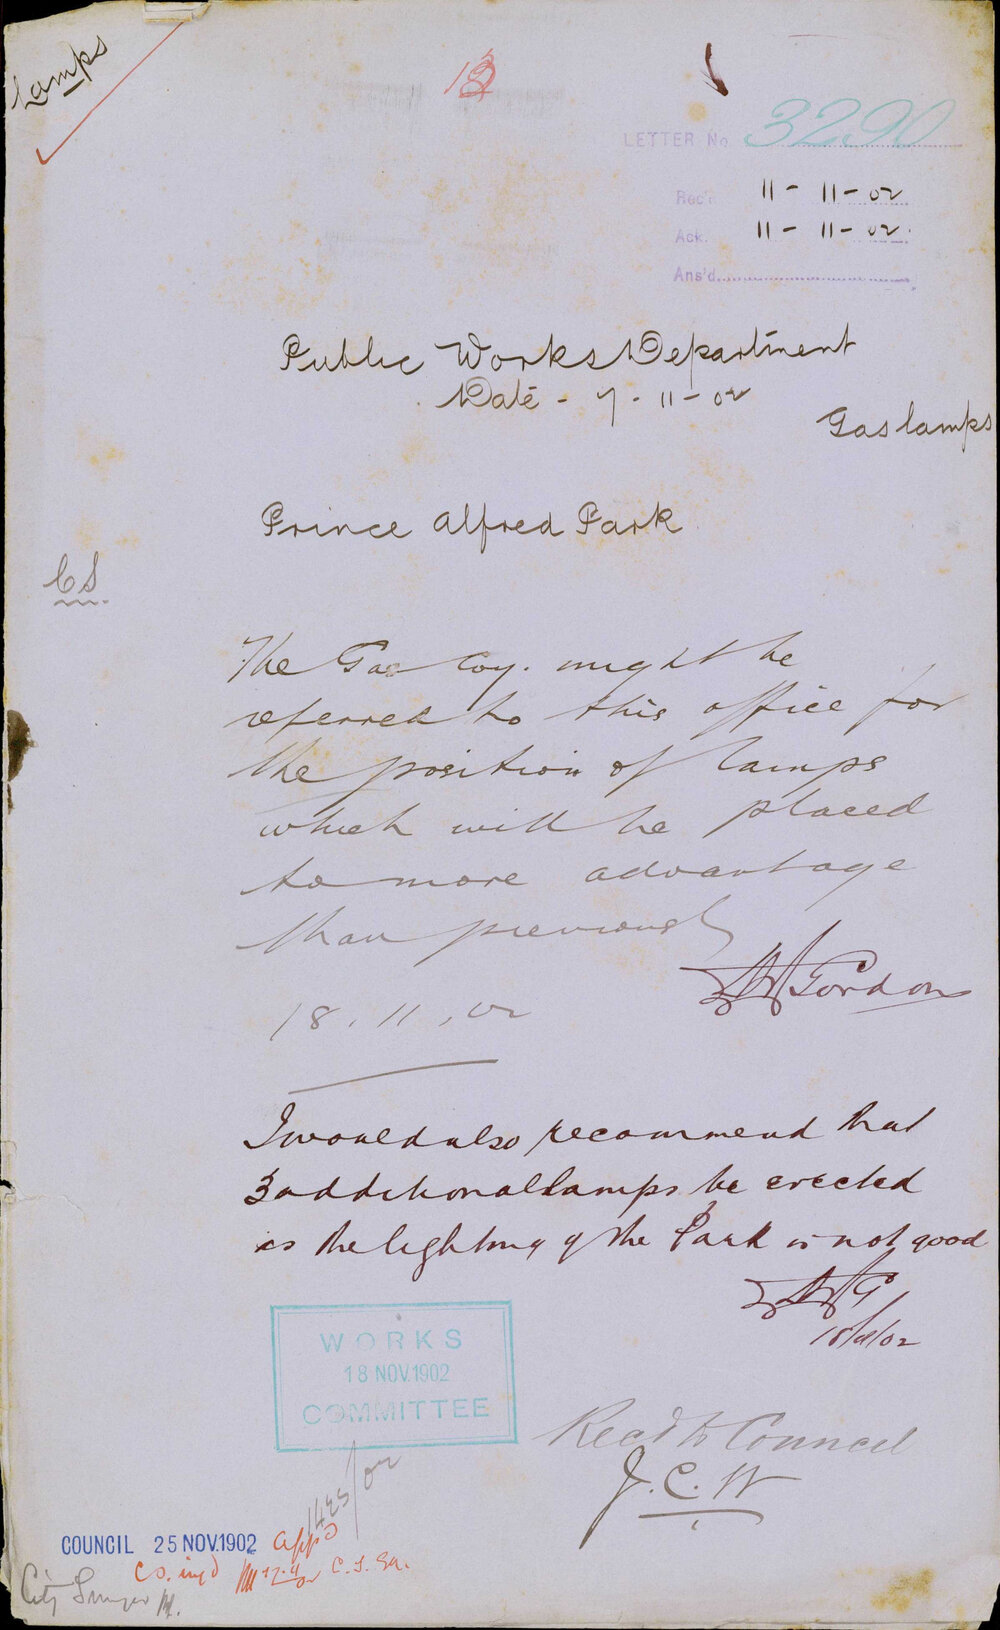 Lamps
LETTER No 3290
Rec'd 11-11-02
Ack. 11-11-02.
Ans'd.
Public Works Department
Date - 7-11-02
Gas lamps
Prince Alfred Park
CS
The Gas Coy. might be
referred to this office for
the position of lamps
which will be placed
to more advantage
than previously
Gordon
18.11.02
I would also recommend that
3 additional lamps be erected
as the lighting of the Park is not good
18/11/02
WORKS
18 NOV.1902
COMMITTEE
Rec'd to Council
J.C.W
COUNCIL 25 NOV.1902 appd
C.S. inf'd
City Surveyor